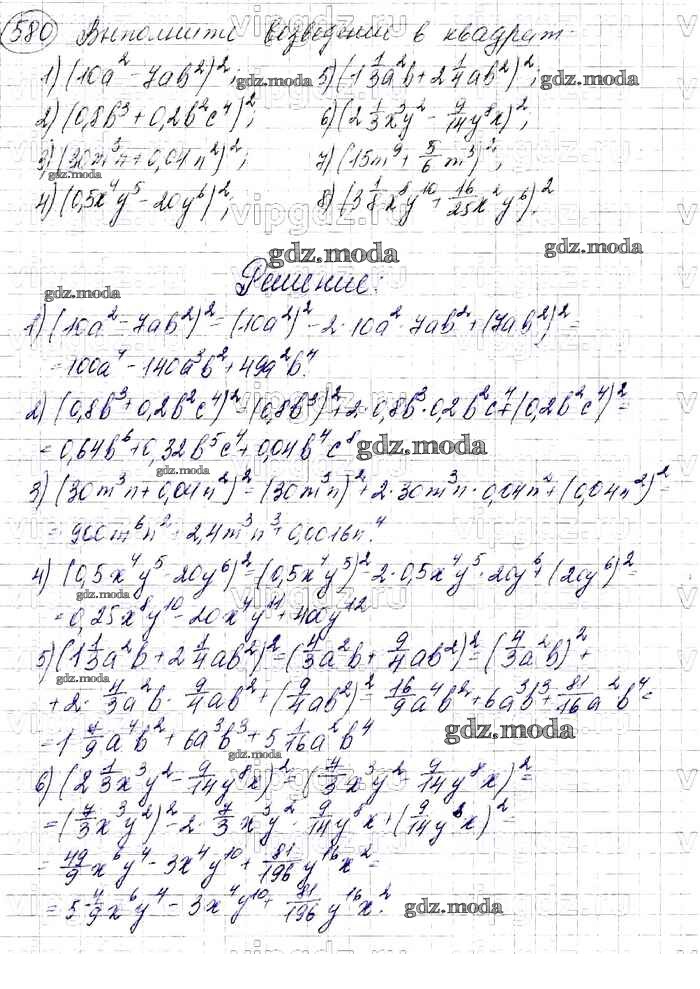 580 Выполните возведение в квадрат
1) (10a² - 7ab²)²; 5) (1 1/3 a²b + 2 1/4 ab²)²;
2) (0,8b³ + 0,2b²c⁴)²; 6) (2 1/3 x³y² - 9/14 y⁸x)²;
3) (30m³n + 0,04n²)²; 7) (15m⁹ + 5/6 m³)²;
4) (0,5x⁴y⁵ - 20y⁶)²; 8) (3 1/8 x⁸y¹⁰ + 16/25 x²y⁶)²
gdz.moda
Решение:
1) (10a² - 7ab²)² = (10a²)² - 2·10a²·7ab² + (7ab²)² =
= 100a⁴ - 140a³b² + 49a²b⁴.
2) (0,8b³ + 0,2b²c⁴)² = (0,8b³)² + 2·0,8b³·0,2b²c⁴ + (0,2b²c⁴)² =
= 0,64b⁶ + 0,32b⁵c⁴ + 0,04b⁴c⁸ gdz.moda
3) (30m³n + 0,04n²)² = (30m³n)² + 2·30m³n·0,04n² + (0,04n²)² =
= 900m⁶n² + 2,4m³n³ + 0,0016n⁴.
4) (0,5x⁴y⁵ - 20y⁶)² = (0,5x⁴y⁵)² - 2·0,5x⁴y⁵·20y⁶ + (20y⁶)² =
= 0,25x⁸y¹⁰ - 20x⁴y¹¹ + 400y¹²
5) (1 1/3 a²b + 2 1/4 ab²)² = (4/3 a²b + 9/4 ab²)² = (4/3 a²b)² +
+ 2·4/3 a²b·9/4 ab² + (9/4 ab²)² = 16/9 a⁴b² + 6a³b³ + 81/16 a²b⁴ =
= 1 7/9 a⁴b² + 6a³b³ + 5 1/16 a²b⁴ gdz.moda
6) (2 1/3 x³y² - 9/14 y⁸x)² = (7/3 x³y² - 9/14 y⁸x)² =
= (7/3 x³y²)² - 2·7/3 x³y²·9/14 y⁸x + (9/14 y⁸x)² =
= 49/9 x⁶y⁴ - 3x⁴y¹⁰ + 81/196 y¹⁶x² =
= 5 4/9 x⁶y⁴ - 3x⁴y¹⁰ + 81/196 y¹⁶x². gdz.moda